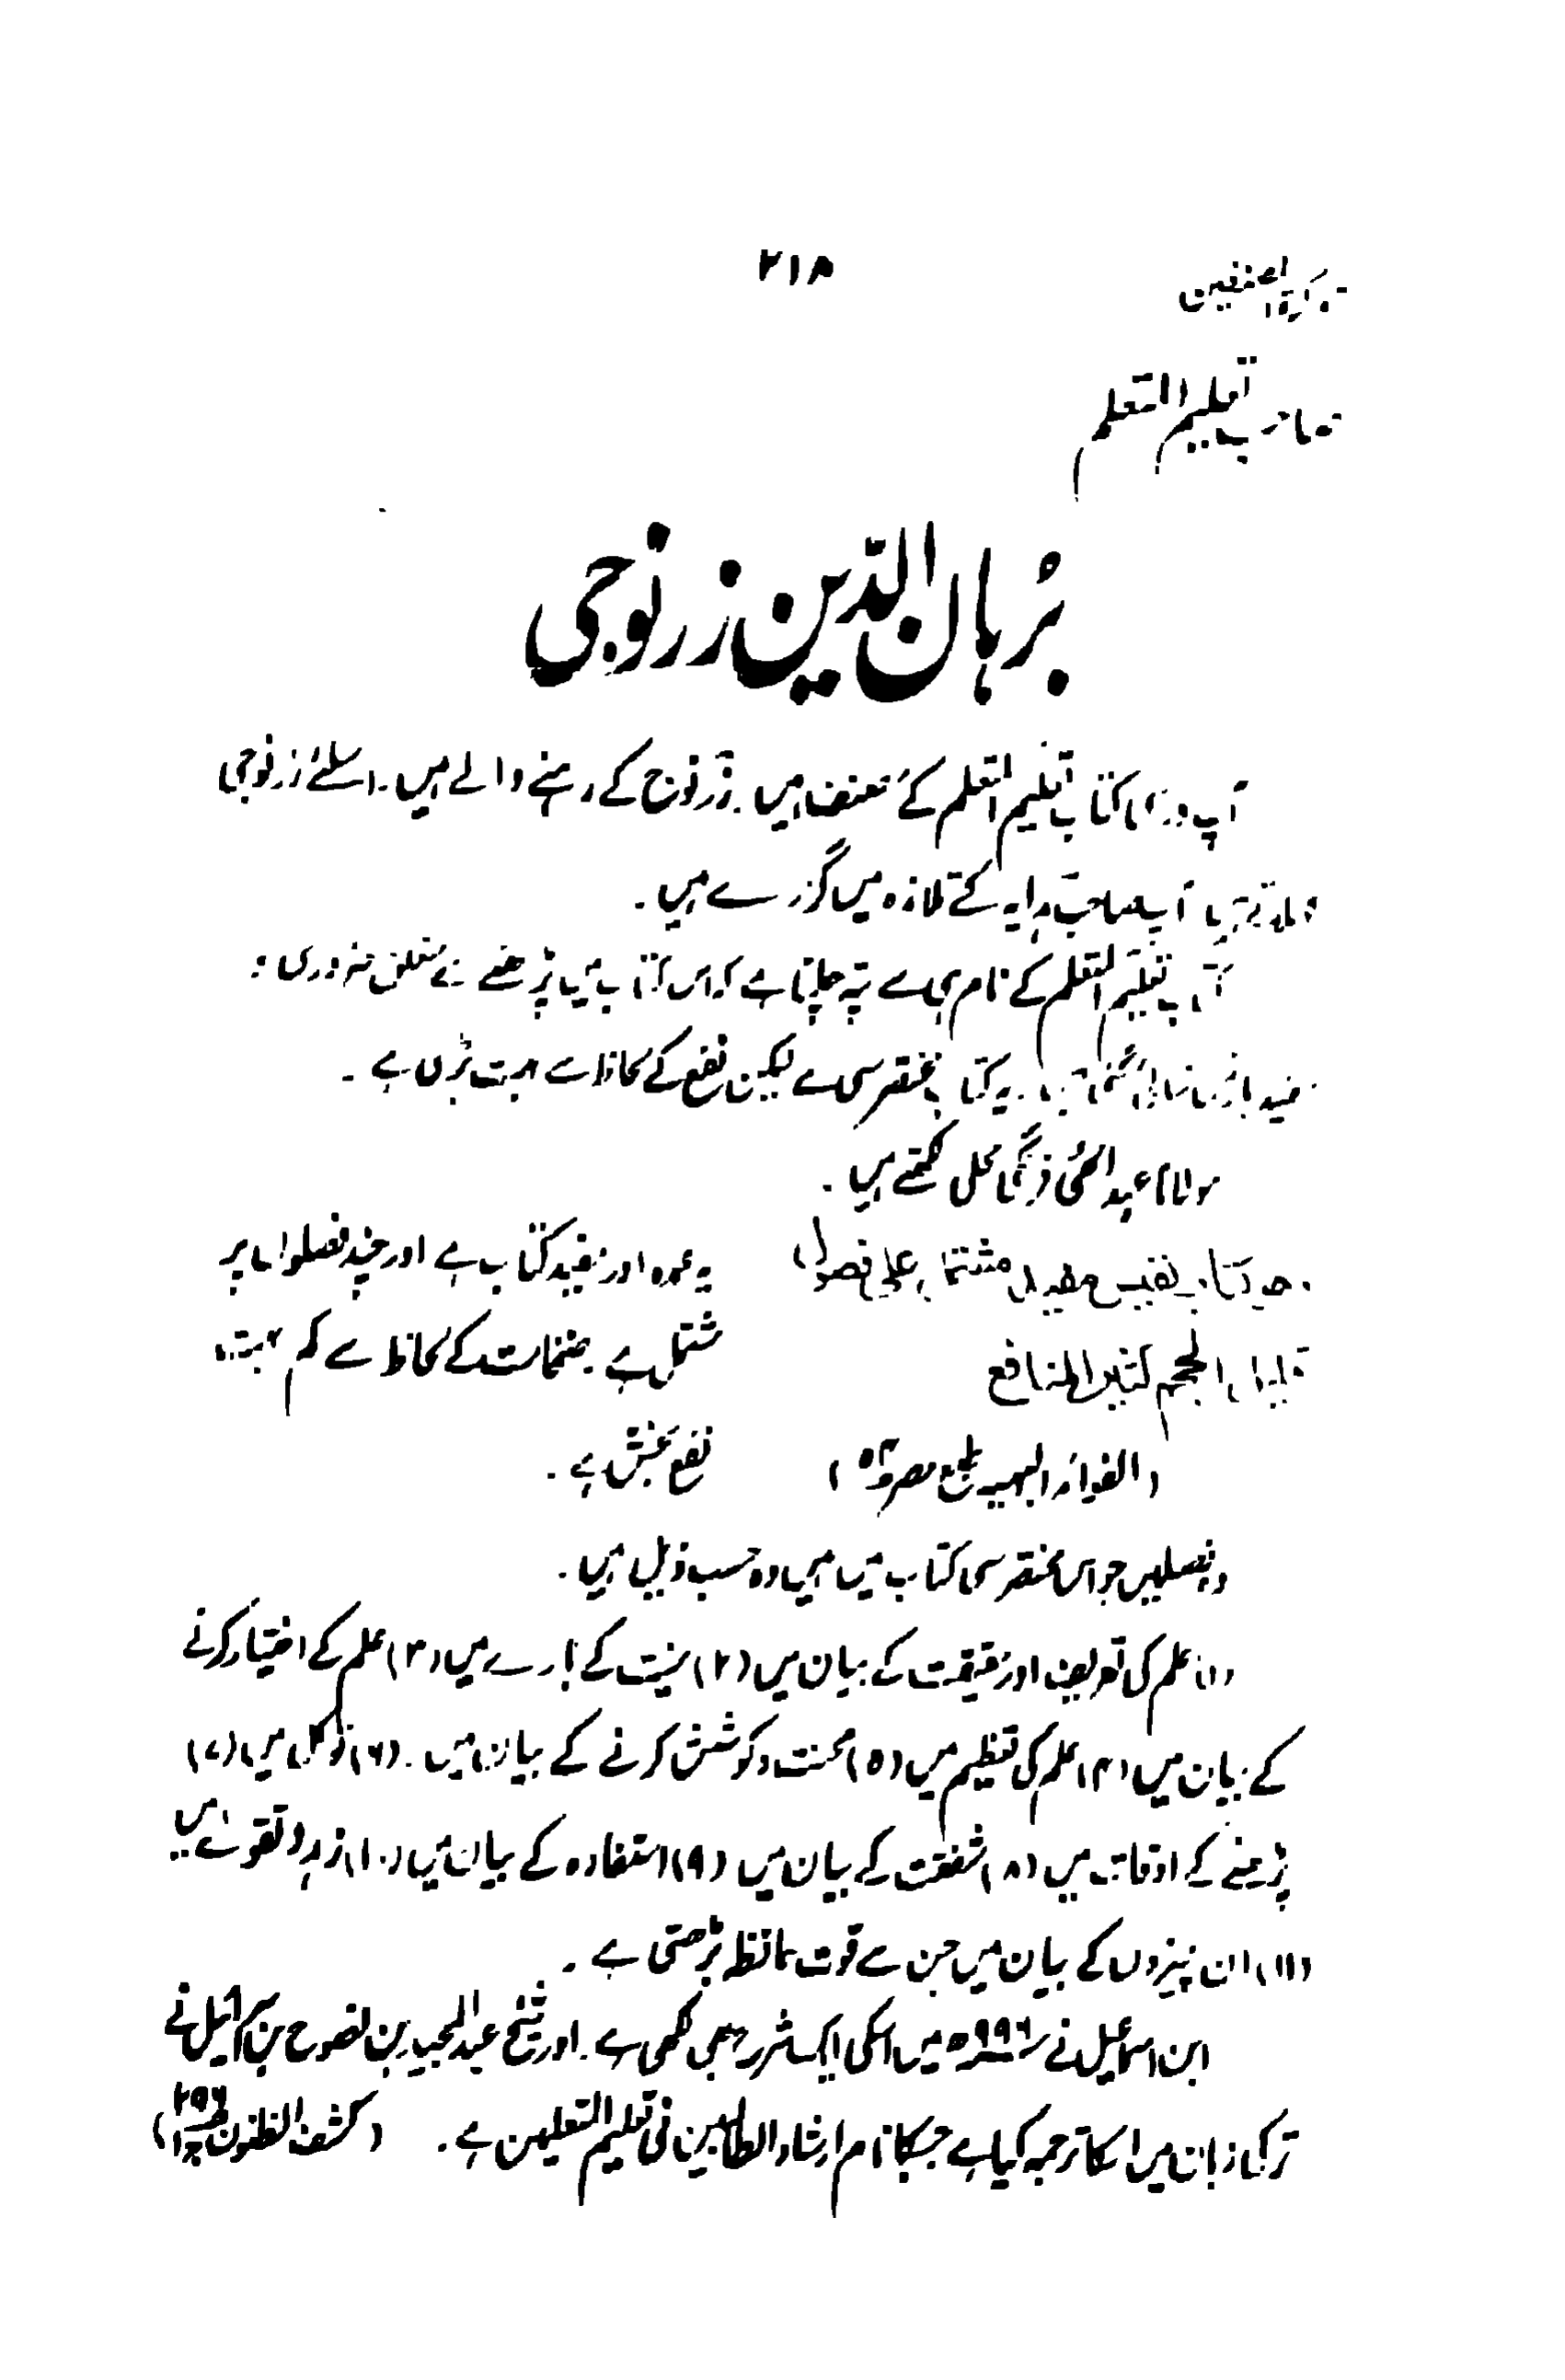 تذکرۃ المصنفین
۲۱۸
صاحب تعلیم المتعلم
بُرہان الدّین زرنوجی
آپ درسی کتاب تعلیم المتعلم کے مصنف ہیں۔ زرنوج کے رہنے والے ہیں۔ اسلئے زرنوجی
آپ صاحب ہدایہ کے تلامذہ میں گزرے ہیں۔
کتاب تعلیم المتعلم کے نام ہی سے پتہ چلتا ہے کہ اس کتاب میں پڑھنے کے متعلق ضروری و
مفید باتیں یہ کتاب مختصر سی ہے لیکن نفع کے لحاظ سے بہت بڑی ہے۔
مولانا عبدالحئی فرنگی محلی لکھتے ہیں۔
ھو کتاب نفیس مفید مشتمل علی فصول
یہ عمدہ اور مفید کتاب ہے اور چند فصلوں پر
قلیل الحجم کثیر المنافع
مشتمل ہے۔ ضخامت کے لحاظ سے کم بہت
(الفوائد البہیہ طبع مصر ص۵۴)
نفع بخش ہے۔
وہ فصلیں جو اس مختصر سی کتاب میں ہیں وہ حسب ذیل ہیں۔
(۱) علم کی تعریف اور حقیقت کے بیان میں (۲) نیت کے بارے میں (۳) علم کے اختیار کرنے
کے بیان میں (۴) علم کی تعظیم میں (۵) محنت و کوشش کرنے کے بیان میں۔ (۶) توکل میں (۷)
پڑھنے کے اوقات میں (۸) شفقت کے بیان میں (۹) استفادہ کے بیان میں (۱۰) زہد و تقویٰ میں
(۱۱) ان چیزوں کے بیان میں جن سے قوت حافظہ بڑھتی ہے۔
ابن اسماعیل نے ۹۹۶ھ میں اسکی ایک شرح بھی لکھی ہے۔ اور شیخ عبدالمجید بن نصوح بن اسرائیل نے
ترکی زبان میں اسکا ترجمہ کیا ہے جسکا نام ارشاد الطالبین فی تعلیم المتعلمین ہے۔ (کشف الظنون